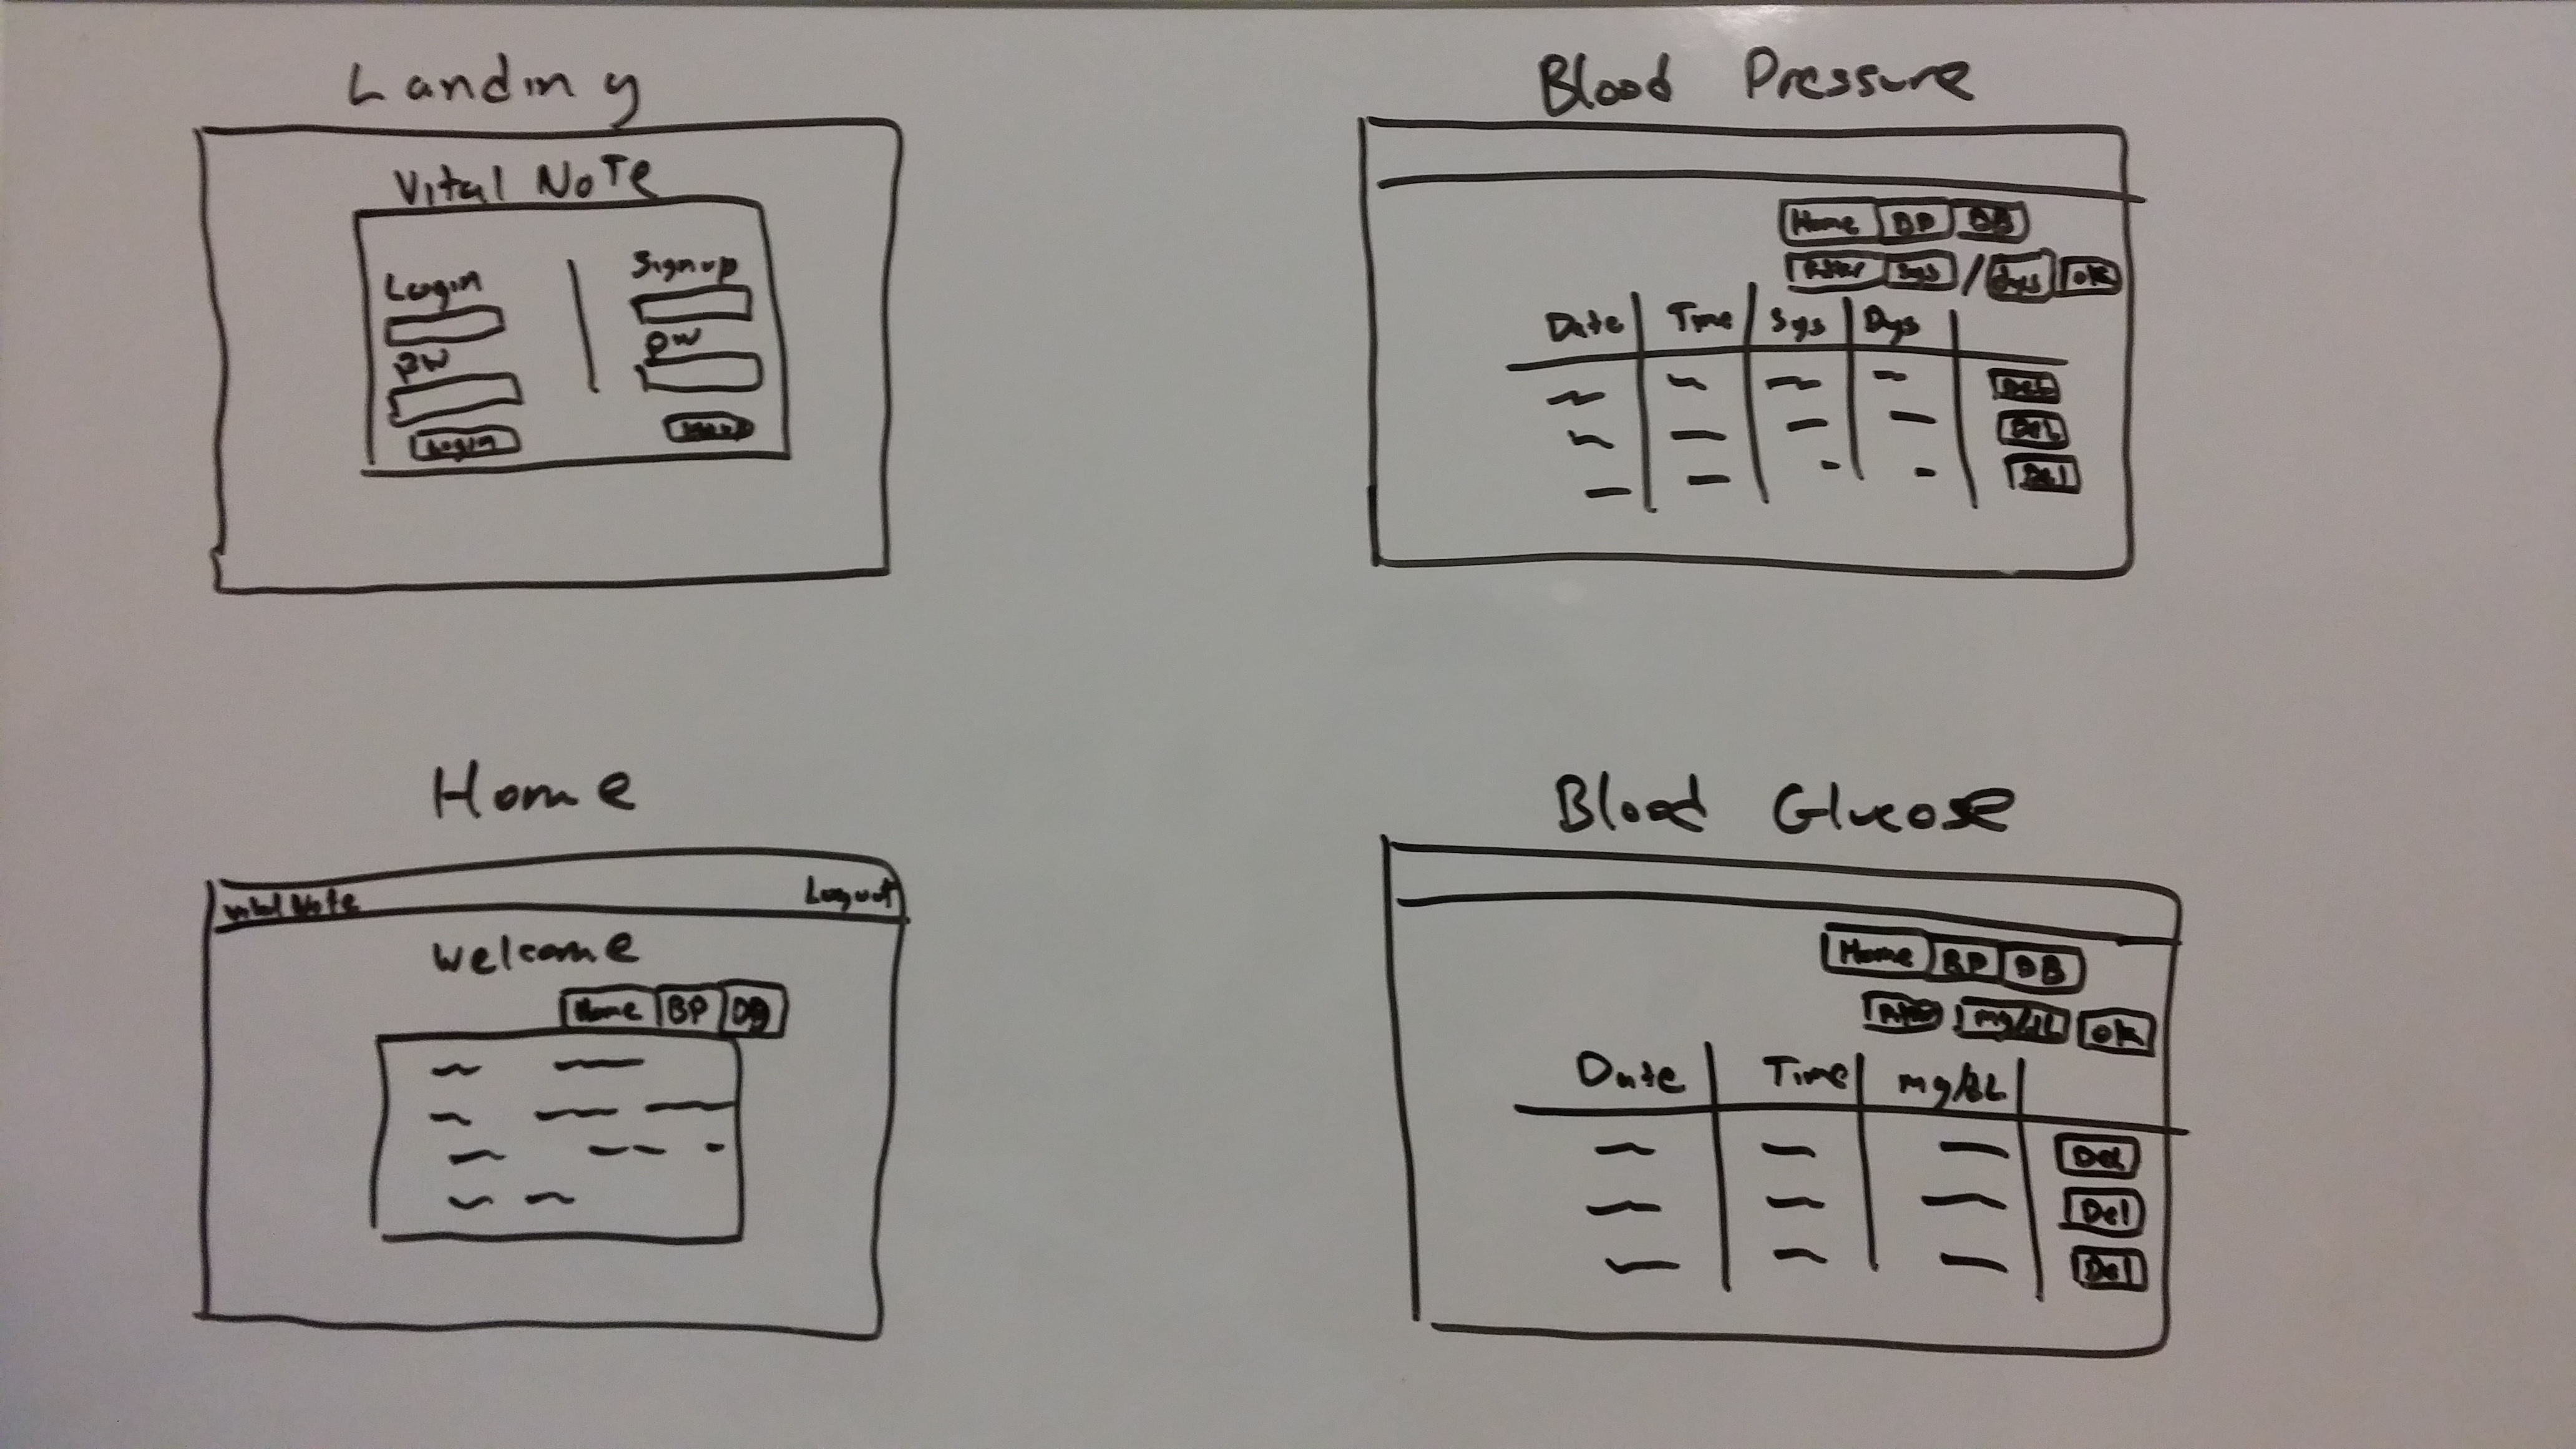 Landing
Vital Note
Login
PW
Login
Signup
PW
Blood Pressure
Home BP DB
Sys / Dys OK
Date Time Sys Dys
Del
Del
Del
Home
Vital Note Logout
Welcome
Home BP DB
Blood Glucose
Home BP DB
mg/dL OK
Date Time mg/dL
Del
Del
Del